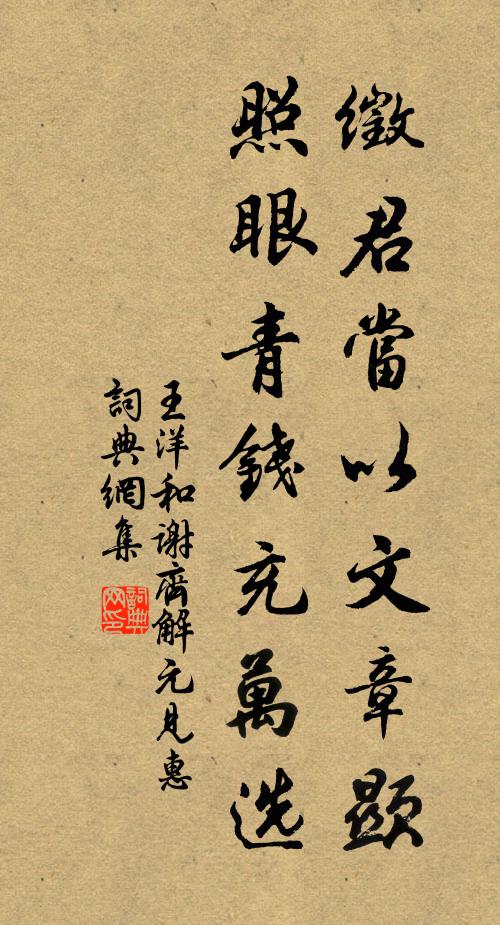 徵君當以文章顯
照眼青錢充萬選
王洋和謝齊解元見惠
詞典網集
詞典网印